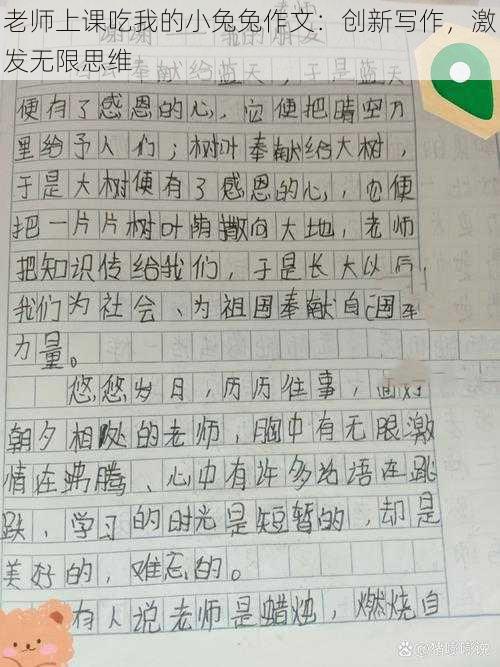 老师上课吃我的小兔兔作文：创新写作，激
发无限思维
奉献给蓝天，于是蓝天
便有了感恩的心，它便把晴空万
里给予人们；树叶奉献给大树，
于是大树便有了感恩的心，它便
把一片片树叶 撒向大地，老师
把知识传给我们，于是长大以后，
我们为社会、为祖国奉献自己
力量。
悠悠岁日，历历往事，面对
朝夕相处的老师，胸中有无限激
情在沸腾、心中有许多话语在跳
跃，学习的时光是短暂的，却是
美好的，难忘的。
有人说老师是蜡烛，燃烧自